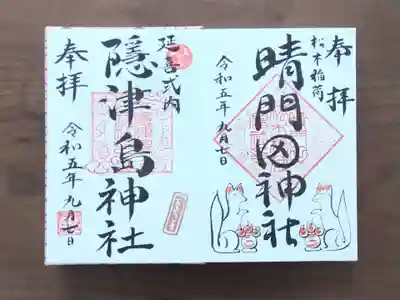 奉拝
松木稲荷
晴門田神社
令和五年九月七日
延喜式内
隠津島神社
奉拝
令和五年九月七日